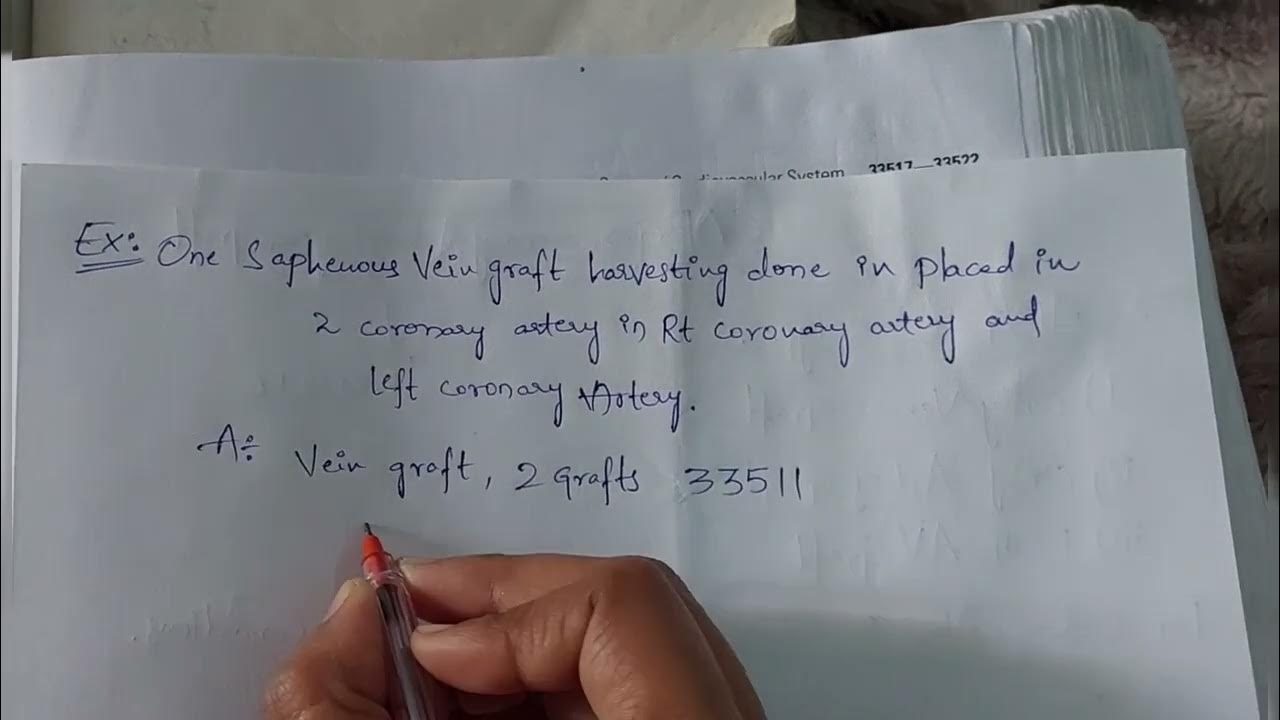 System 33517—33522
Ex: One Saphenous Vein graft harvesting done in placed in
2 coronary artery in Rt coronary artery and
left coronary Artery.
A: Vein graft, 2 Grafts 33511